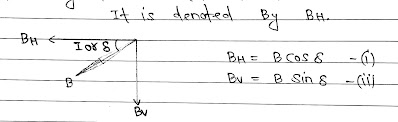 It is denoted By BH.
BH I or δ
BH = B cos δ -(i)
B BV = B sin δ -(ii)
BV